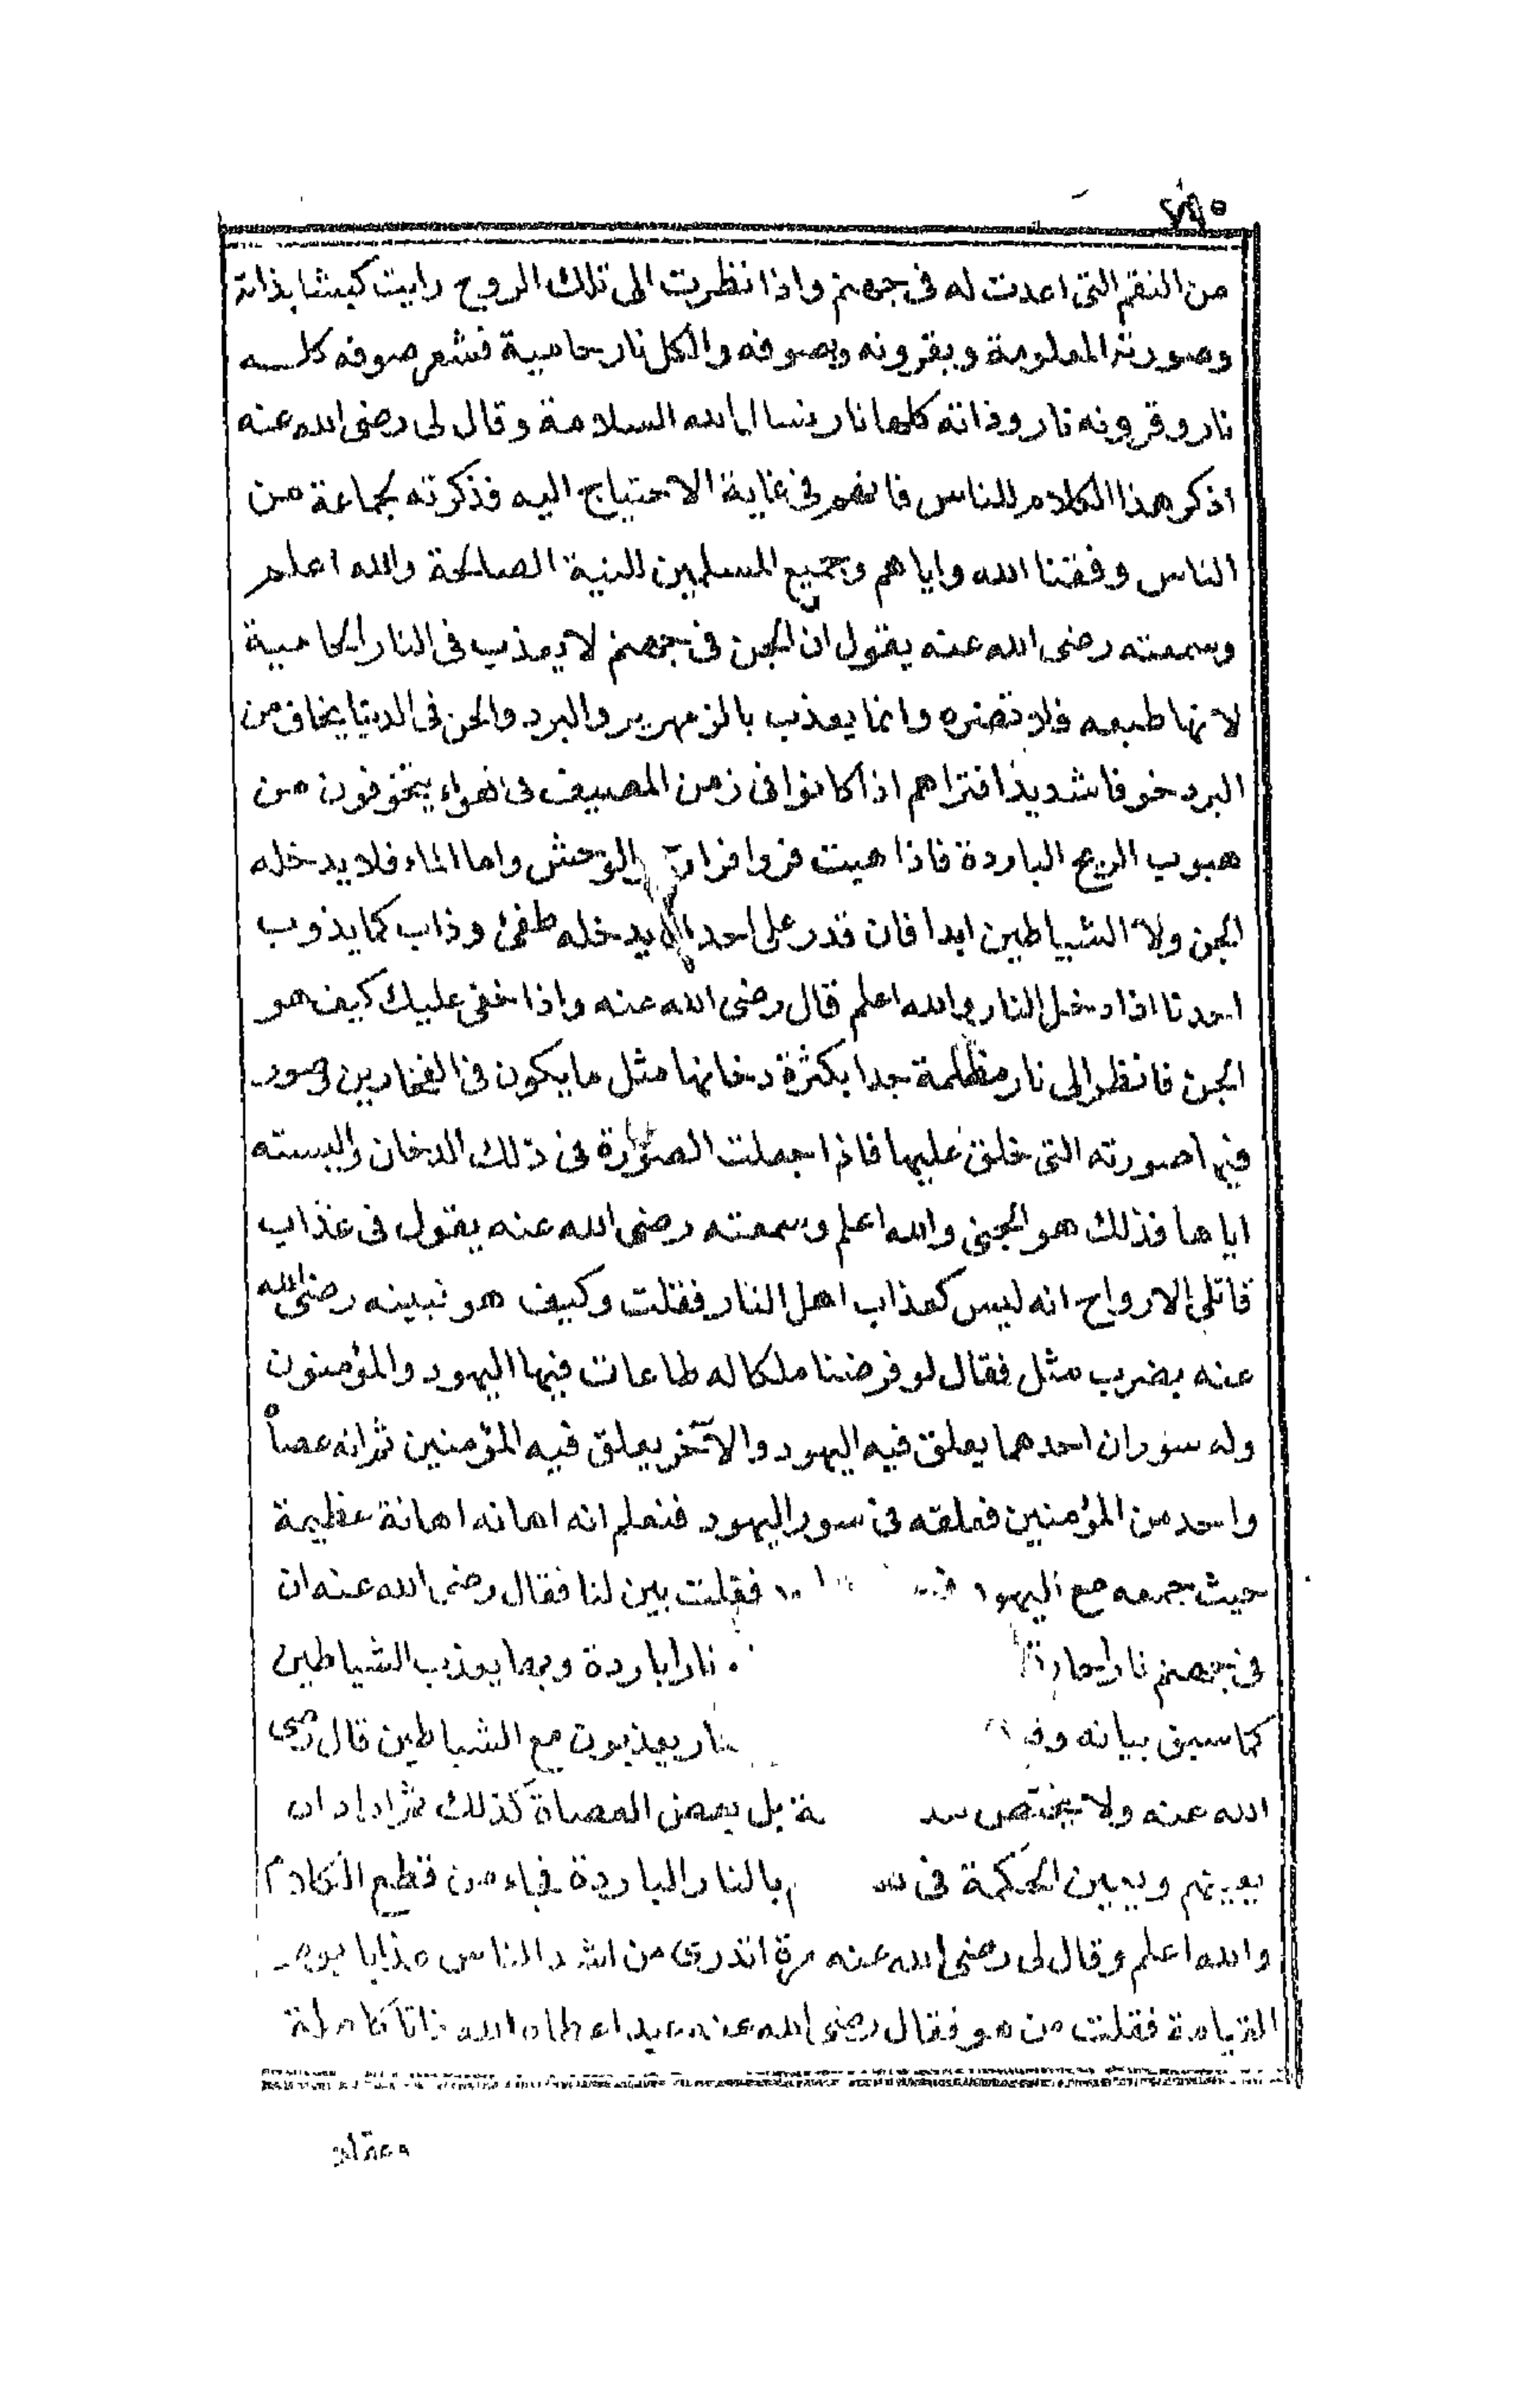 من النقم التى اعدت له فى جهنم واذا نظرت الى تلك الروح رايت كبشا بذاته
وصورته المعلومة وبقرونه وبصوفه والكل نار حامية فشعر صوفه كله
نار وقرونه نار وذاته كلها نار نسال الله السلامة وقال لى رضى الله عنه
اذكر هذا الكلام للناس فانهم فى غاية الاحتياج اليه فذكرته لجماعة من
الناس وفقنا الله واياهم وجميع المسلمين للنية الصالحة والله اعلم
وسمعته رضى الله عنه يقول ان الجن فى جهنم لا يعذب فى النار الحامية
لانها طبعه فلا تضره وانما يعذب بالزمهرير والبرد والجن فى الدنيا يخاف من
البرد خوفا شديدا فتراهم اذا كانوا فى زمن المصيف فى الهواء يتخوفون من
هبوب الريح الباردة فاذا هبت فروا فرار الوحش واما الماء فلا يدخله
الجن ولا الشياطين ابدا فان قدر على احد يدخله طفئ وذاب كما يذوب
احدنا اذا دخل النار والله اعلم قال رضى الله عنه واذا خفى عليك كيف هو
الجن فانظر الى نار مظلمة جدا بكثرة دخانها مثل ما يكون فى الفخارين وصور
فيها صورته التى خلق عليها فاذا جعلت الصورة فى ذلك الدخان والبسته
اياها فذلك هو الجنى والله اعلم وسمعته رضى الله عنه يقول فى عذاب
قاتلى الارواح انه ليس كعذاب اهل النار فقلت وكيف هو فبينه رضى الله
عنه بضرب مثل فقال لو فرضنا ملكا له طاعات فيها اليهود والمؤمنون
وله سوران احدهما يعلق فيه اليهود والآخر يعلق فيه المؤمنين ثم انه عصاه
واحد من المؤمنين فعلقه فى سور اليهود فنعلم انه اهانه اهانة عظيمة
حيث جمعه مع اليهود فقلت بين لنا فقال رضى الله عنه ان
فى جهنم نارا حارة نارا باردة وبها يعذب الشياطين
كما سبق بيانه يعذبون مع الشياطين قال رضى
الله عنه ولا يختص بل بعض العصاة كذلك ثم اراد ان
يعينهم ويبين الحكمة فى بالنار الباردة فجاء من قطع الكلام
والله اعلم وقال لى رضى الله عنه مرة اتدرى من اشد الناس عذابا يوم
القيامة فقلت من هو فقال رضى الله عنه عبد اعطاه الله ذاتا كاملة